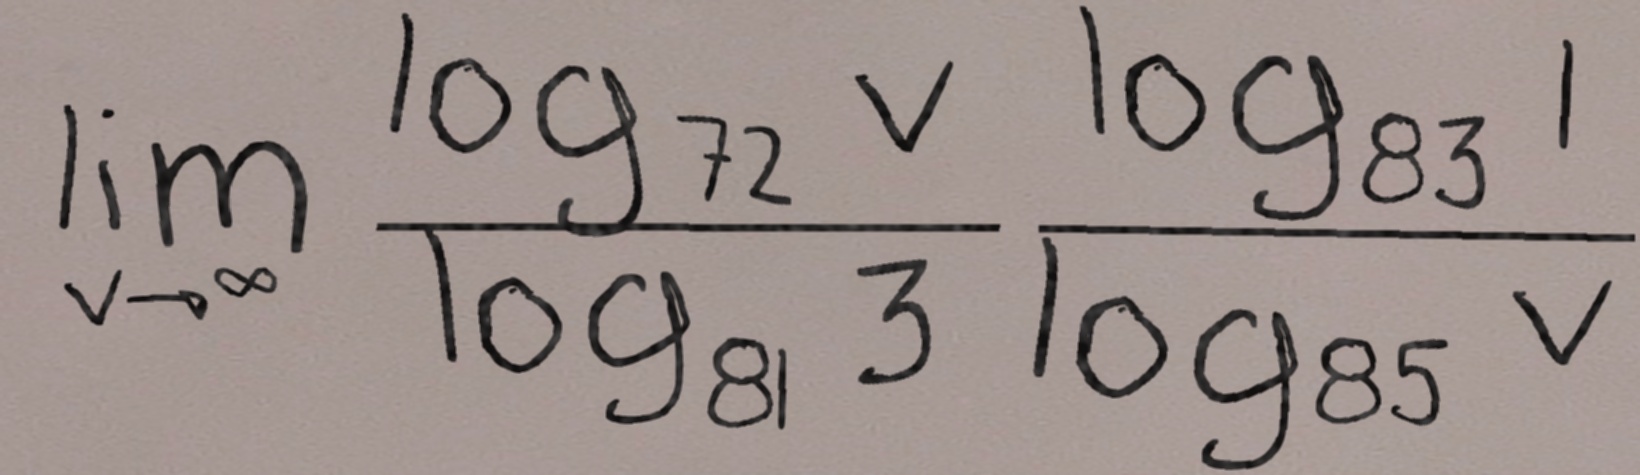 \lim_{v \to \infty} \frac{\log_{72} v}{\log_{81} 3} \frac{\log_{83} 1}{\log_{85} v}